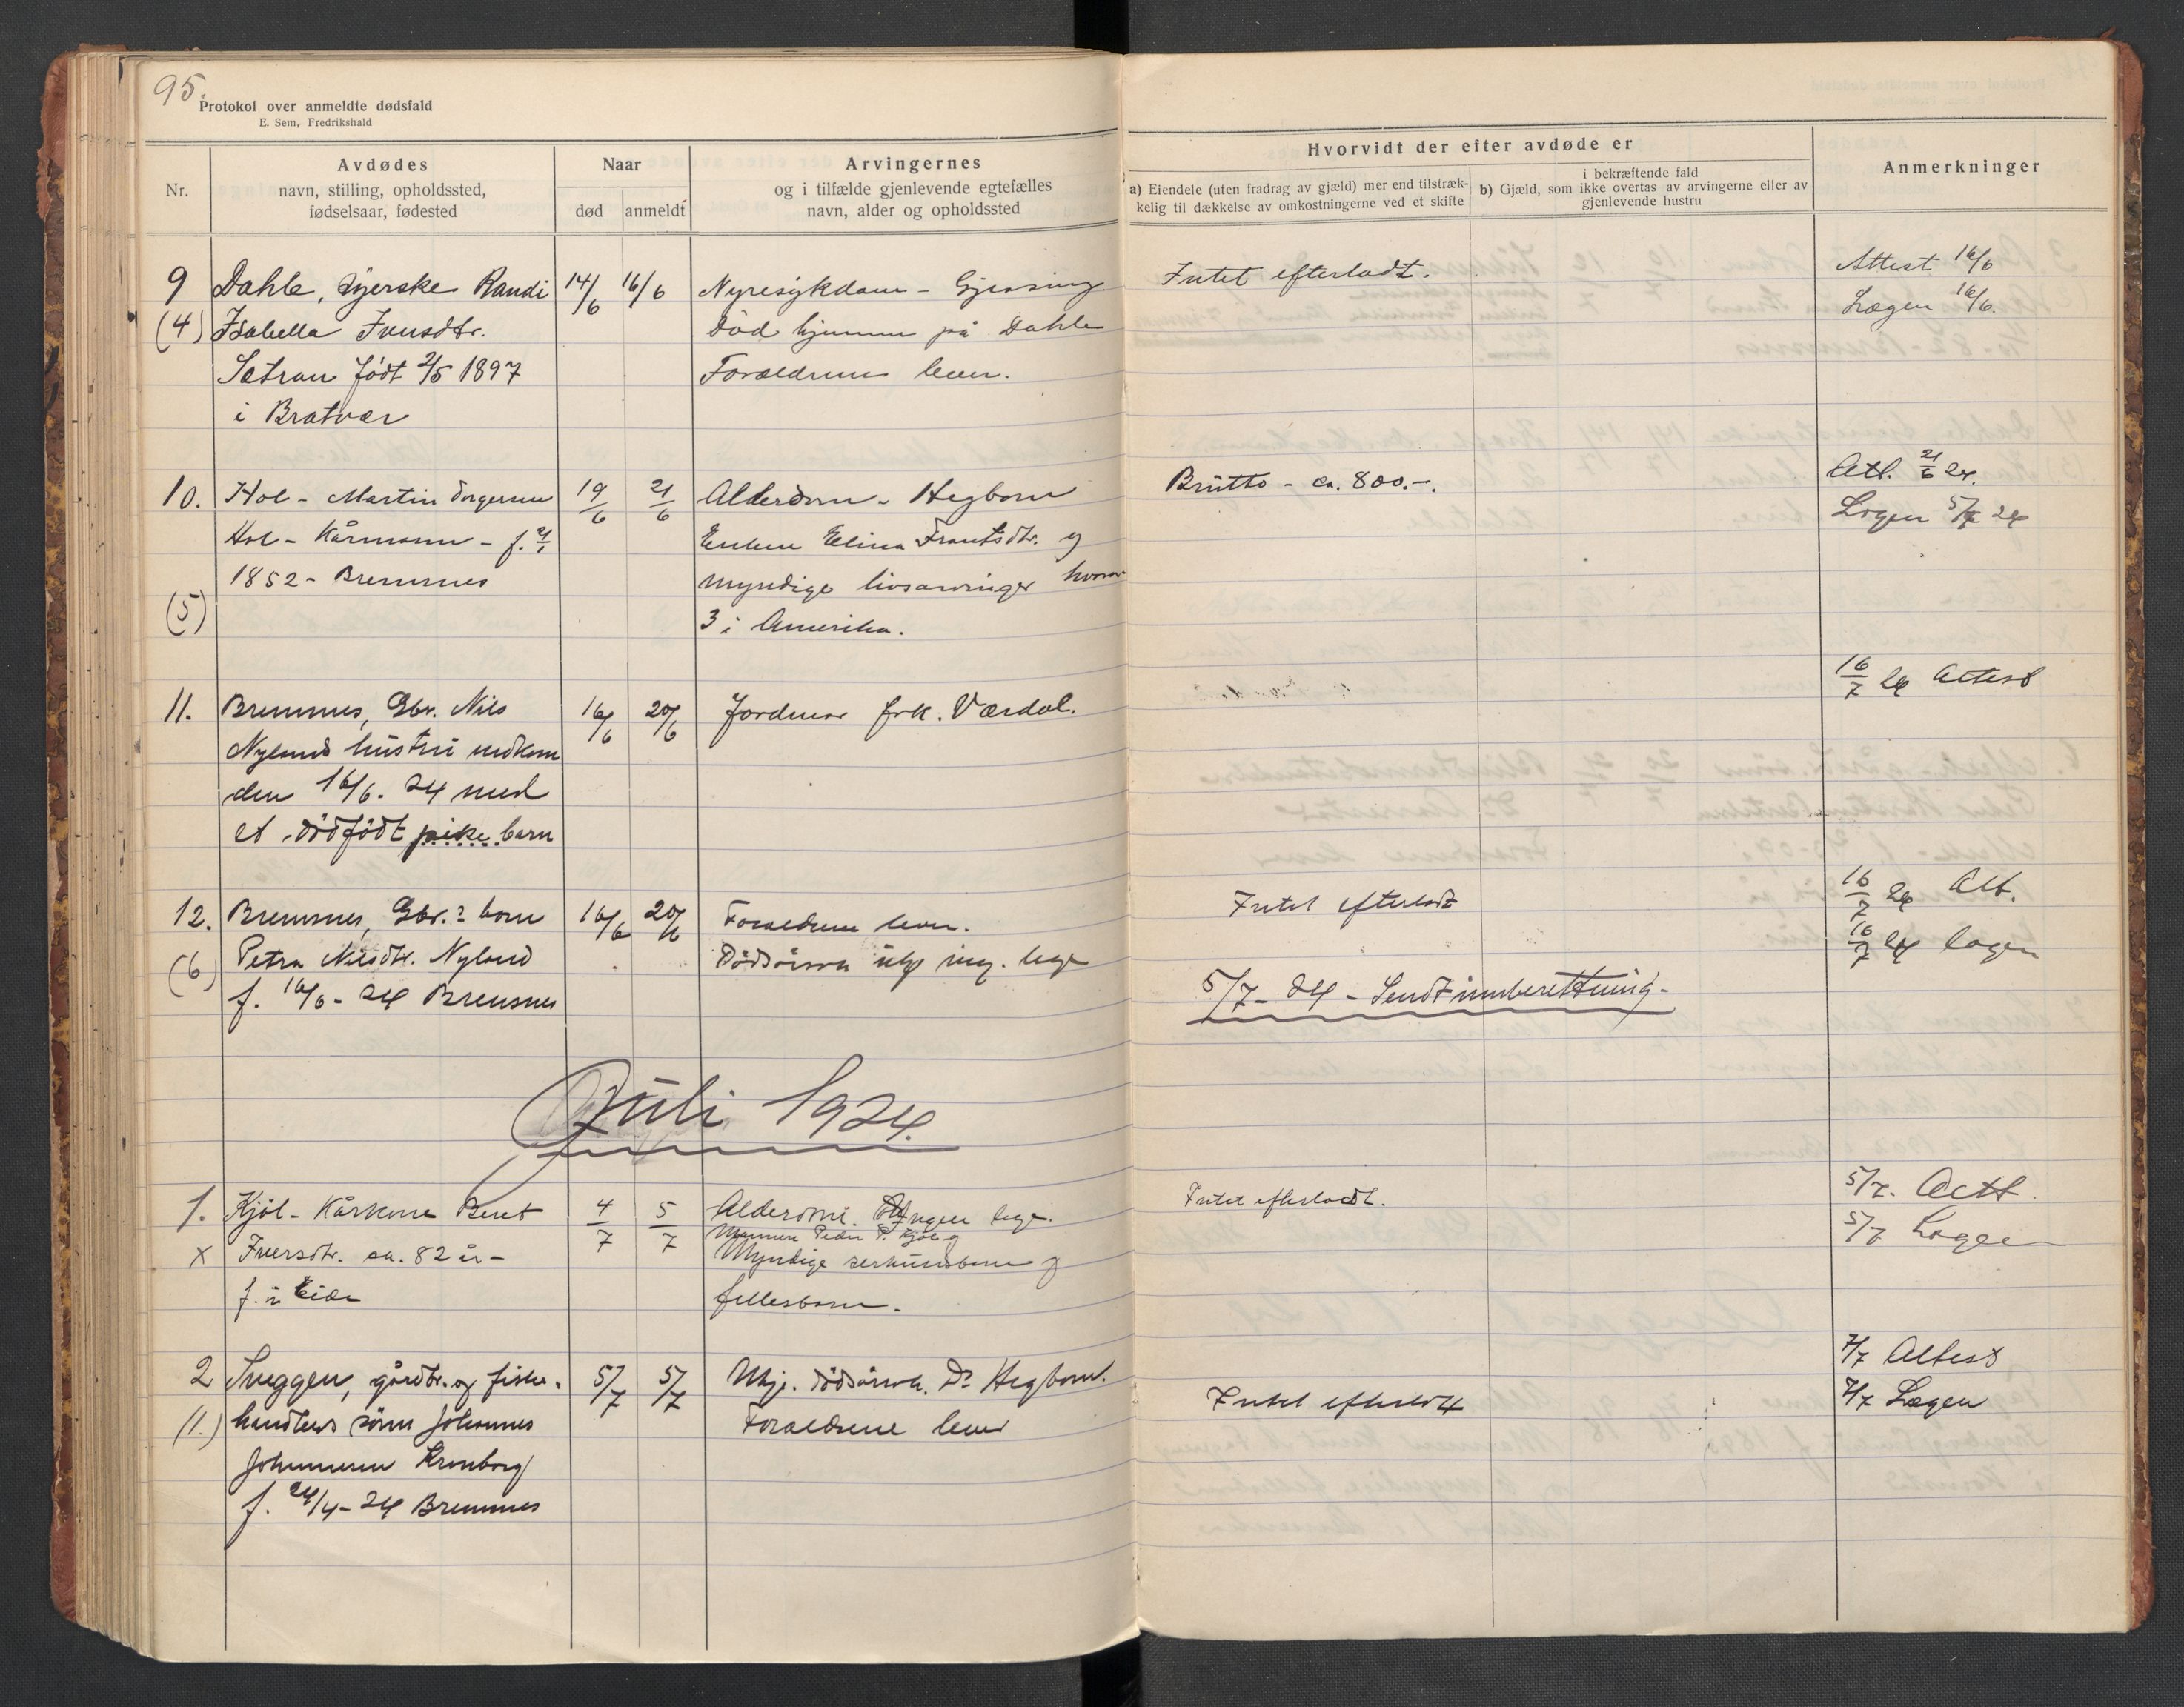 95.
Protokol over anmeldte dødsfald
E. Sem, Fredrikshald
Nr.
Avdødes
navn, stilling, opholdssted,
fødselsaar, fødested
Naar
død
anmeldt
Arvingernes
og i tilfælde gjenlevende egtefælles
navn, alder og opholdssted
Hvorvidt der efter avdøde er
a) Eiendele (uten fradrag av gjæld) mer end tilstræk-
kelig til dækkelse av omkostningerne ved et skifte
i bekræftende fald
b) Gjæld, som ikke overtas av arvingerne eller av
gjenlevende hustru
Anmerkninger
9 Dahle, syerske Randi 14/6 16/6 Nyresykdom - Gjessing Intet efterladt. Attest 16/6
(4) Isabella Iversdtr. Död hjemme på Dahle Lægen 16/6.
Sætran födt 2/5 1897 Forældrene lever.
i Bratvær
10. Hol - Martin Torgersen 19/6 21/6 Alderdom - Hegbom Brutto - ca. 800.-. Att. 21/6 24.
Hol - Kårmann - f. Enken Elina Frantsdtr. og Lægen 5/7 24
1852 - Bremsnes myndige livsarvinger hvorav
(5) 3 i Amerika.
11. Bremsnes, Gbr. Nils 16/6 20/6 Jordmor frk. Værdal. 16/7 24 Attest
Nylands hustru nedkom
den 16/6. 24 med
et dödfödt pike barn
12. Bremsnes, Gbr.s barn 16/6 20/6 Forældrene lever. Intet efterladt 16/7 24 Att.
(6) Petra Nilsdtr. Nyland Dödsårsak ing. lege 16/7 24 Lægen
f. 16/6 - 24 Bremsnes
5/7 - 24 - Sendt innberettning -
Juli 1924.
1. Kjöl - Kårkone Beret 4/7 5/7 Alderdom. Ingen lege. Intet efterladt. 5/7. Att.
Mannen Peder P. Kjöl og
x Iversdtr. ca. 82 år - Myndige særkulsbarn og 5/7 Lægen
f. i Eide fellesbarn.
2 Sveggen, gårdbr. og fiske- 5/7 5/7 Ukje. dödsårsak. Dr Hegbom. Intet efterladt 7/7 Attest
(1.) handlers sönn Johannes Forældrene lever 7/7 Lægen
Johannesen Kronborg
f. 24/4 - 24 Bremsnes